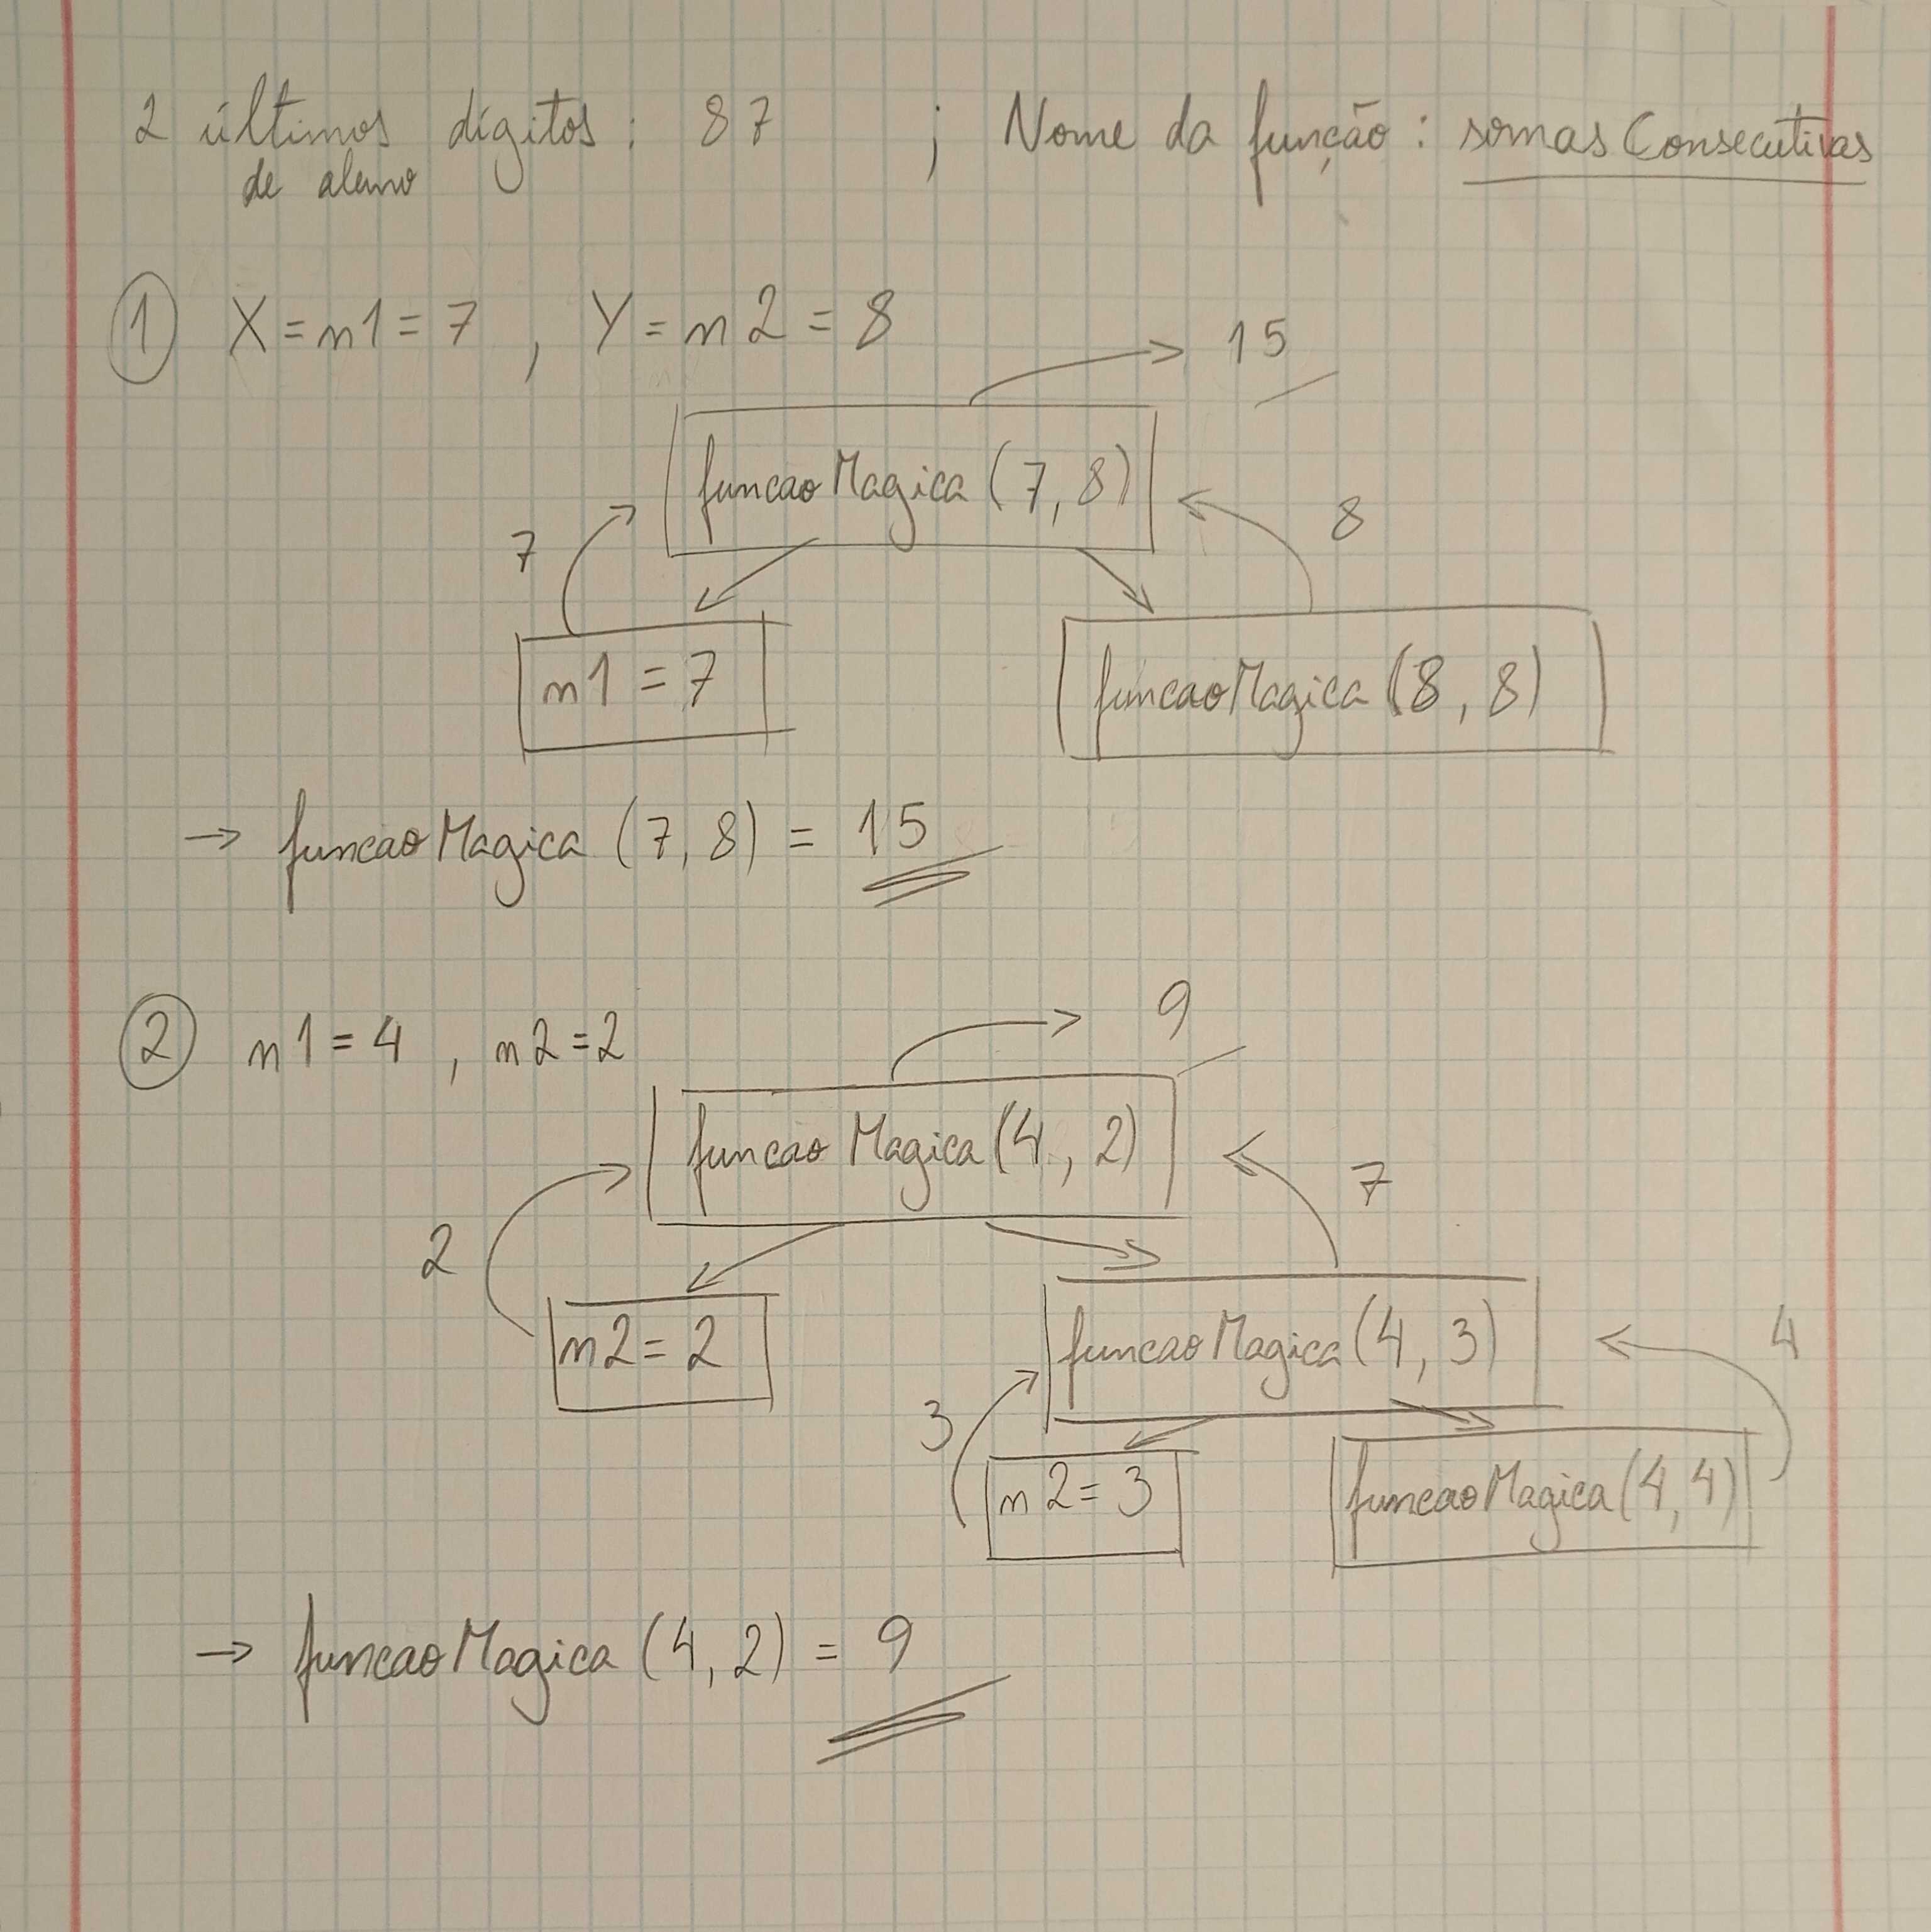 2 últimos dígitos : 87 ; Nome da função : somas Consecutivas
de aluno
1 X = n1 = 7 , Y = n2 = 8
15
funcao Magica (7, 8)
7
8
n1 = 7
funcao Magica (8, 8)
→ funcao Magica (7, 8) = 15
2 n1 = 4 , n2 = 2
9
funcao Magica (4, 2)
7
2
n2 = 2
funcao Magica (4, 3)
4
3
n2 = 3
funcao Magica (4, 4)
→ funcao Magica (4, 2) = 9